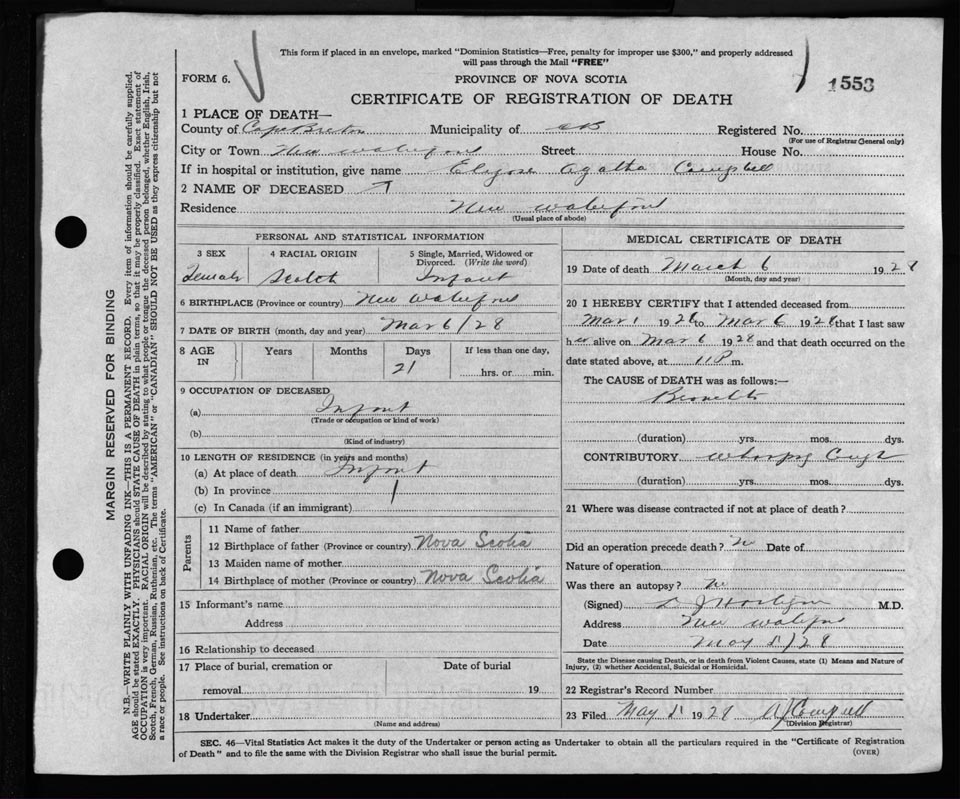 This form if placed in an envelope, marked "Dominion Statistics—Free, penalty for improper use $300," and properly addressed
will pass through the Mail "FREE"
FORM 6.
PROVINCE OF NOVA SCOTIA
1553
CERTIFICATE OF REGISTRATION OF DEATH
1 PLACE OF DEATH—
County of Cape Breton Municipality of CB Registered No.
(For use of Registrar General only)
City or Town New Waterford Street House No.
If in hospital or institution, give name Agatha Campbell
2 NAME OF DECEASED
Residence New Waterford
(Usual place of abode)
PERSONAL AND STATISTICAL INFORMATION
3 SEX 4 RACIAL ORIGIN 5 Single, Married, Widowed or
Divorced. (Write the word)
Female Scotch Infant
6 BIRTHPLACE (Province or country) New Waterford
7 DATE OF BIRTH (month, day and year) Mar 6/28
8 AGE Years Months Days If less than one day,
IN 21 hrs. or min.
9 OCCUPATION OF DECEASED
(a) Infant
(Trade or occupation or kind of work)
(b)
(Kind of industry)
10 LENGTH OF RESIDENCE (in years and months)
(a) At place of death Infant
(b) In province
(c) In Canada (if an immigrant)
Parents
11 Name of father
12 Birthplace of father (Province or country) Nova Scotia
13 Maiden name of mother
14 Birthplace of mother (Province or country) Nova Scotia
15 Informant's name
Address
16 Relationship to deceased
17 Place of burial, cremation or Date of burial
removal 19
18 Undertaker
(Name and address)
MEDICAL CERTIFICATE OF DEATH
19 Date of death March 6 1928
(Month, day and year)
20 I HEREBY CERTIFY that I attended deceased from
Mar 1 1928 to Mar 6 1928 that I last saw
her alive on Mar 6 1928 and that death occurred on the
date stated above, at 11 P m.
The CAUSE of DEATH was as follows:—
(duration) yrs. mos. dys.
CONTRIBUTORY Whooping Cough
(duration) yrs. mos. dys.
21 Where was disease contracted if not at place of death?
Did an operation precede death? no Date of
Nature of operation
Was there an autopsy? no
(Signed) M.D.
Address New Waterford
Date May 5/28
State the Disease causing Death, or in death from Violent Causes, state (1) Means and Nature of
Injury, (2) whether Accidental, Suicidal or Homicidal.
22 Registrar's Record Number
23 Filed May 1928 Campbell
(Division Registrar)
SEC. 46—Vital Statistics Act makes it the duty of the Undertaker or person acting as Undertaker to obtain all the particulars required in the "Certificate of Registration
of Death" and to file the same with the Division Registrar who shall issue the burial permit.
(OVER)
MARGIN RESERVED FOR BINDING
N.B.—WRITE PLAINLY WITH UNFADING INK—THIS IS A PERMANENT RECORD. Every item of information should be carefully supplied.
AGE should be stated EXACTLY. PHYSICIANS should STATE CAUSE OF DEATH in plain terms, so that it may be properly classified. Exact statement of
OCCUPATION is very important. RACIAL ORIGIN will be described by stating to what people or tongue the deceased person belonged, whether English, Irish,
Scotch, French, German, Russian, Ruthenian, etc. The terms "AMERICAN" or "CANADIAN" SHOULD NOT BE USED as they express citizenship but not
a race or people. See instructions on back of Certificate.